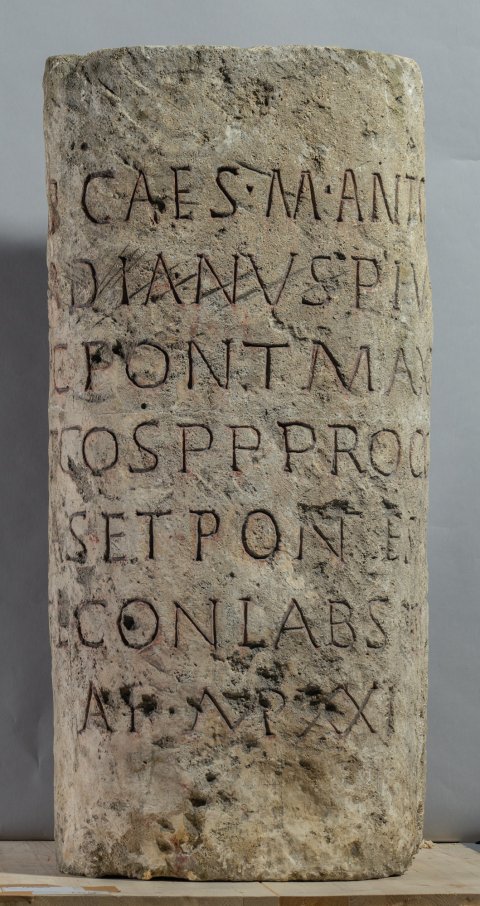 CAES·M·ANT
DIANVS PIV
PONT MAX
COS PP PROC
SET PON
CONLABS
AP·M P XXI